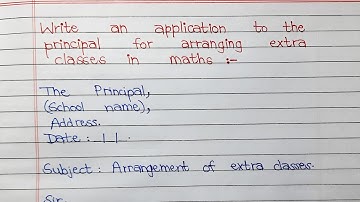 Write an application to the
principal for arranging extra
classes in maths :-
The Principal,
(School name),
Address.
Date: __/__/__.
Subject: Arrangement of extra classes.
Sir